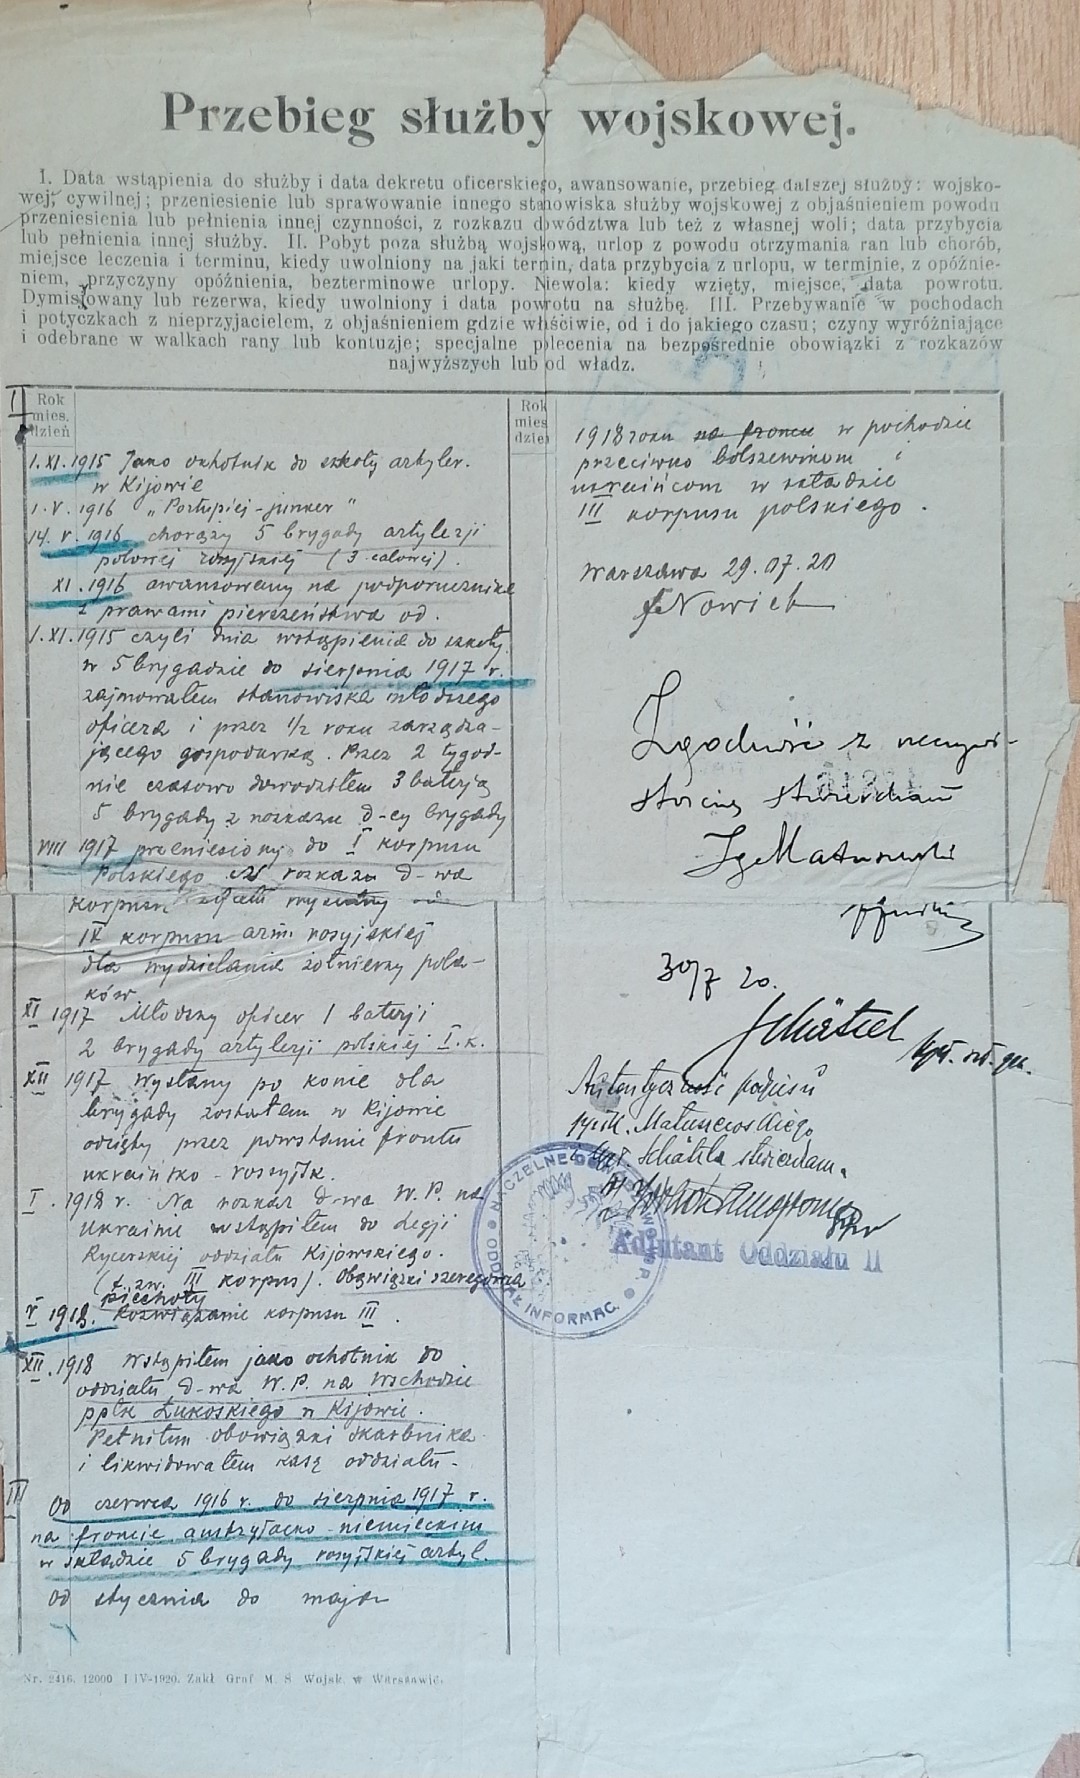 Przebieg służby wojskowej.
I. Data wstąpienia do służby i data dekretu oficerskiego, awansowanie, przebieg dalszej służby: wojsko-
wej, cywilnej; przeniesienie lub sprawowanie innego stanowiska służby wojskowej z objaśnieniem powodu
przeniesienia lub pełnienia innej czynności, z rozkazu dowództwa lub też z własnej woli; data przybycia
lub pełnienia innej służby. II. Pobyt poza służbą wojskową, urlop z powodu otrzymania ran lub chorób,
miejsce leczenia i terminu, kiedy uwolniony na jaki termin, data przybycia z urlopu, w terminie, z opóźnie-
niem, przyczyny opóźnienia, bezterminowe urlopy. Niewola: kiedy wzięty, miejsce, data powrotu.
Dymisjowany lub rezerwa, kiedy uwolniony i data powrotu na służbę. III. Przebywanie w pochodach
i potyczkach z nieprzyjacielem, z objaśnieniem gdzie właściwie, od i do jakiego czasu; czyny wyróżniające
i odebrane w walkach rany lub kontuzje; specjalne polecenia na bezpośrednie obowiązki z rozkazów
najwyższych lub od władz.
I
Rok
mies.
dzień
1.XI.1915 Jako ochotnik do szkoły artyler.
w Kijowie
1.V.1916 „Portupiej-junker"
14.V.1916 chorąży 5 brygady artylerji
polowej rosyjskiej (3 calowej).
XI.1916 awansowany na podporucznika
z prawami pierszeństwa od.
1.XI.1915 czyli dnia wstąpienia do szkoły
w 5 brygadzie do sierpnia 1917 r.
zajmowałem stanowiska młodszego
oficera i przez 1/2 roku zarządza-
jącego gospodarką. Przez 2 tygod-
nie czasowo dowodziłem 3 baterją
5 brygady z rozkazu d-cy brygady
VIII 1917 przeniesiony do I korpusu
Polskiego rozkazu d-wa
korpusu
IV korpusu armi rosyjskiej
dla wydzielania żołnierzy pola-
ków.
XI 1917 Młodszy oficer 1 baterji
2 brygady artylerji polskiej I.k.
XII 1917 Wysłany po konie dla
brygady zostałem w Kijowie
odcięty przez powstanie frontu
ukraińsko-rosyjsk.
I. 1918 r. Na rozkaz d-wa W.P. na
Ukrainie wstąpiłem do Legji
Rycerskiej oddziału Kijowskiego.
(t.zw. III korpus). Obowiązki szeregowca
piechoty
V 1918. Rozwiązanie korpusu III.
XII.1918 Wstąpiłem jako ochotnik do
oddziału d-wa W.P. na Wschodzie
ppłk Łukoskiego w Kijowie.
Pełniłem obowiązki skarbnika
i likwidowałem kasę oddziału-
III
Od czerwca 1916 r. do sierpnia 1917 r.
na froncie austrjacko-niemieckim
w składzie 5 brygady rosyjskiej artyl.
od stycznia do maja
Nr. 2416. 12000 I IV-1920. Zakł Graf M. S Wojsk. w Warszawie.
Rok
mies
dzień
1918 roku na froncie w pochodzie
przeciwko bolszewikom i
ukraińcom w składzie
III korpusu polskiego.
Warszawa 29.07.20
Nowick
Zgodność z rzeczywi-
stością stwierdzam
Ig Matuszewski
30/7 20.
Schätzel
Autentyczność podpisu
Matuszewskiego
i kpt. Schätzla stwierdzam.
NACZELNE DOWÓDZTWO W.P.
ODDZIAŁ INFORMAC.
Adjutant Oddziału II